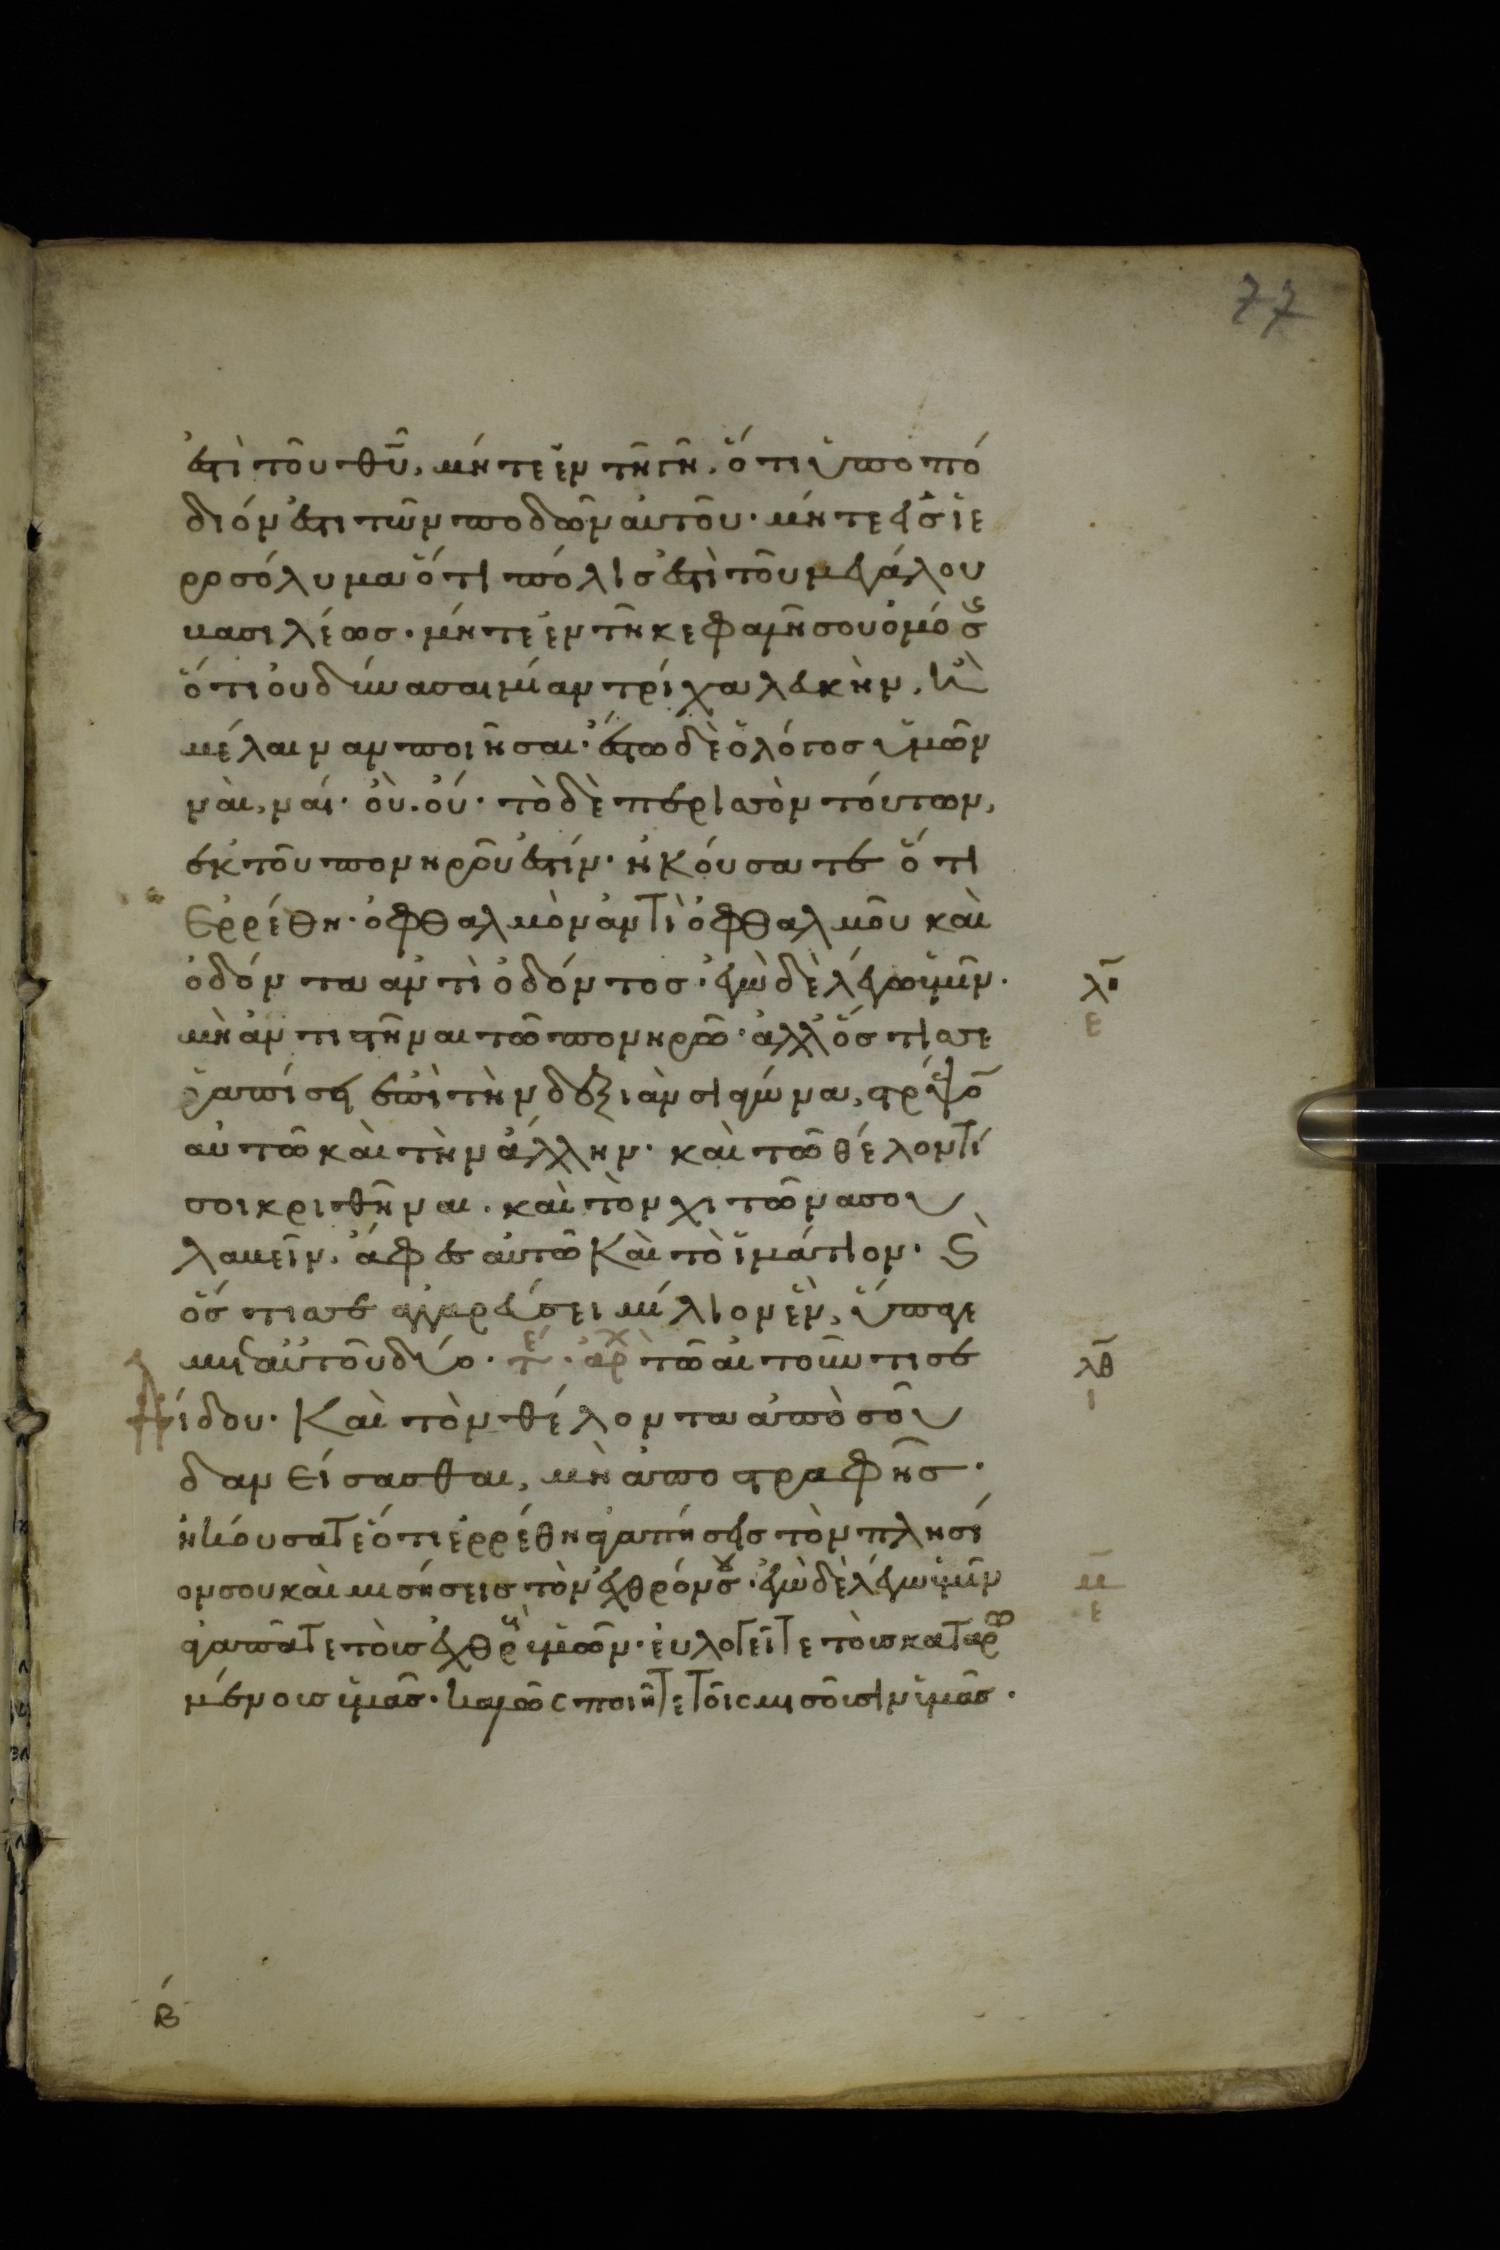 77
ἐστὶ τοῦ θῦ, μήτε ἐν τῆ γῆ, ὅτι ὑποπό
διόν ἐστι τῶν ποδῶν αὐτοῦ· μήτε εἰς ἱε
ροσόλυμα ὅτι πόλις ἐστὶ τοῦ μεγάλου
βασιλέως· μήτε ἐν τῆ κεφαλῆ σου ὀμόσης
ὅτι οὐ δύνασαι μίαν τρίχα λευκὴν, ἢ
μέλαιναν ποιῆσαι· ἔστω δὲ ὁ λόγος ὑμῶν
ναὶ, ναί· οὺ· οὐ· τὸ δὲ περισσὸν τούτων,
ἐκ τοῦ πονηροῦ ἐστίν· ἠκούσατε ὅτι
ἐρρέθη· ὀφθαλμὸν ἀντὶ ὀφθαλμοῦ καὶ
ὀδόντα ἀντὶ ὀδόντος· ἐγὼ δὲ λέγω ὑμῖν·
λη
ε
μὴ ἀντιστῆναι τῶ πονηρῶ· ἀλλ' ὅστις σε
ῥαπίσει ἐπὶ τὴν δεξιὰν σιαγόνα, στρέψον
αὐτῶ καὶ τὴν ἄλλην· καὶ τῶ θέλοντί
σοι κριθῆναι· καὶ τὸν χιτῶνα σου
λαβεῖν, ἄφες αὐτῶ καὶ τὸ ἱμάτιον· ϗ
ὅστις σε ἀγγαρεύσει μίλιον ἓν, ὕπαγε
μετ αὐτοῦ δύο· τε· αρχ τῶ αἰτοῦντι σε
λθ
ι
δίδου· καὶ τὸν θέλοντα ἀπὸ σοῦ
δανείσασθαι, μὴ ἀποστραφῆς·
ἠκούσατε ὅτι ἐρρέθη ἀγαπήσεις τὸν πλησί
ον σου καὶ μισήσεις τὸν ἐχθρόν σου· ἐγὼ δὲ λέγω ὑμῖν
μ
ε
ἀγαπᾶτε τοὺς ἐχθροὺς ὑμῶν· εὐλογεῖτε τοὺς καταρω
μένους ὑμᾶς· καλῶς ποιῆτε τοῖς μισοῦσιν ὑμᾶς·
β